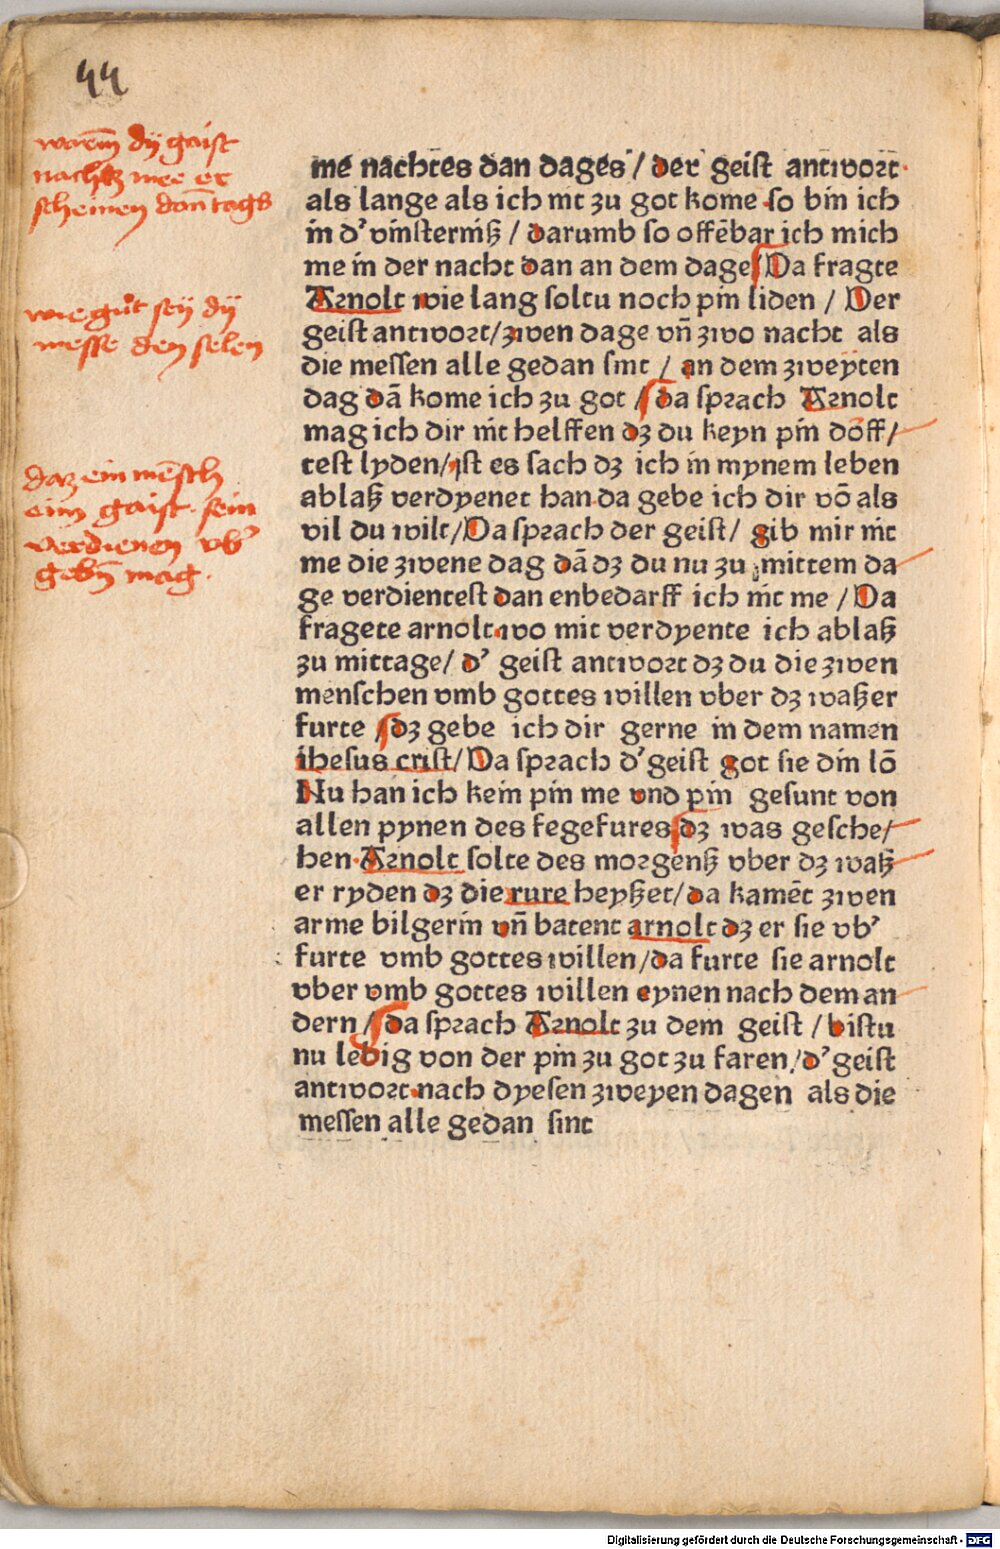 44
warem̄ dÿ gaist
nachtz mee er
scheinen dan̄ tags
wie gůt seÿ dÿ
messe den selen
daz ein mēsch
eim gaist sein
verdienen vbʼ
gebn̄ mag.
me nachtes dan dages / der geist antwort·
als lange als ich nit zu got kome·so bin ich
in dʼ vinsterniß / darumb so offēbar ich mich
me in der nacht dan an dem dage Da fragte
Arnolt wie lang soltu noch pin liden / Der
geist antwort/zwen dage vn̄ zwo nacht als
die messen alle gedan sint / an dem zweyten
dag dā kome ich zu got / da sprach Arnolt
mag ich dir nit helffen dʒ du keyn pin dōff/
test lyden/ist es sach dʒ ich in mynem leben
ablaß verdyenet han da gebe ich dir vō als
vil du wilt/Da sprach der geist/ gib mir nit
me die zwene dag dā dʒ du nu zu mittem da
ge verdientest dan enbedarff ich nit me / Da
fragete arnolt·wo mit verdyente ich ablaß
zu mittage/ dʼ geist antwort dʒ du die zwen
menschen vmb gottes willen vber dʒ waßer
furte / dʒ gebe ich dir gerne in dem namen
ihesus crist/Da sprach dʼ geist got sie din lō
Nu han ich kein pin me vnd pin gesunt von
allen pynen des fegefures dʒ was gesche/
hen·Arnolt solte des morgenß vber dʒ waß
er ryden dʒ die rure heyßet/da kamēt zwen
arme bilgerin vn̄ batent arnolt dʒ er sie vbʼ
furte vmb gottes willen/da furte sie arnolt
vber vmb gottes willen eynen nach dem an
dern / da sprach Arnolt zu dem geist / bistu
nu ledig von der pin zu got zu faren/dʼ geist
antwort·nach dyesen zweyen dagen als die
messen alle gedan sint
Digitalisierung gefördert durch die Deutsche Forschungsgemeinschaft - DFG